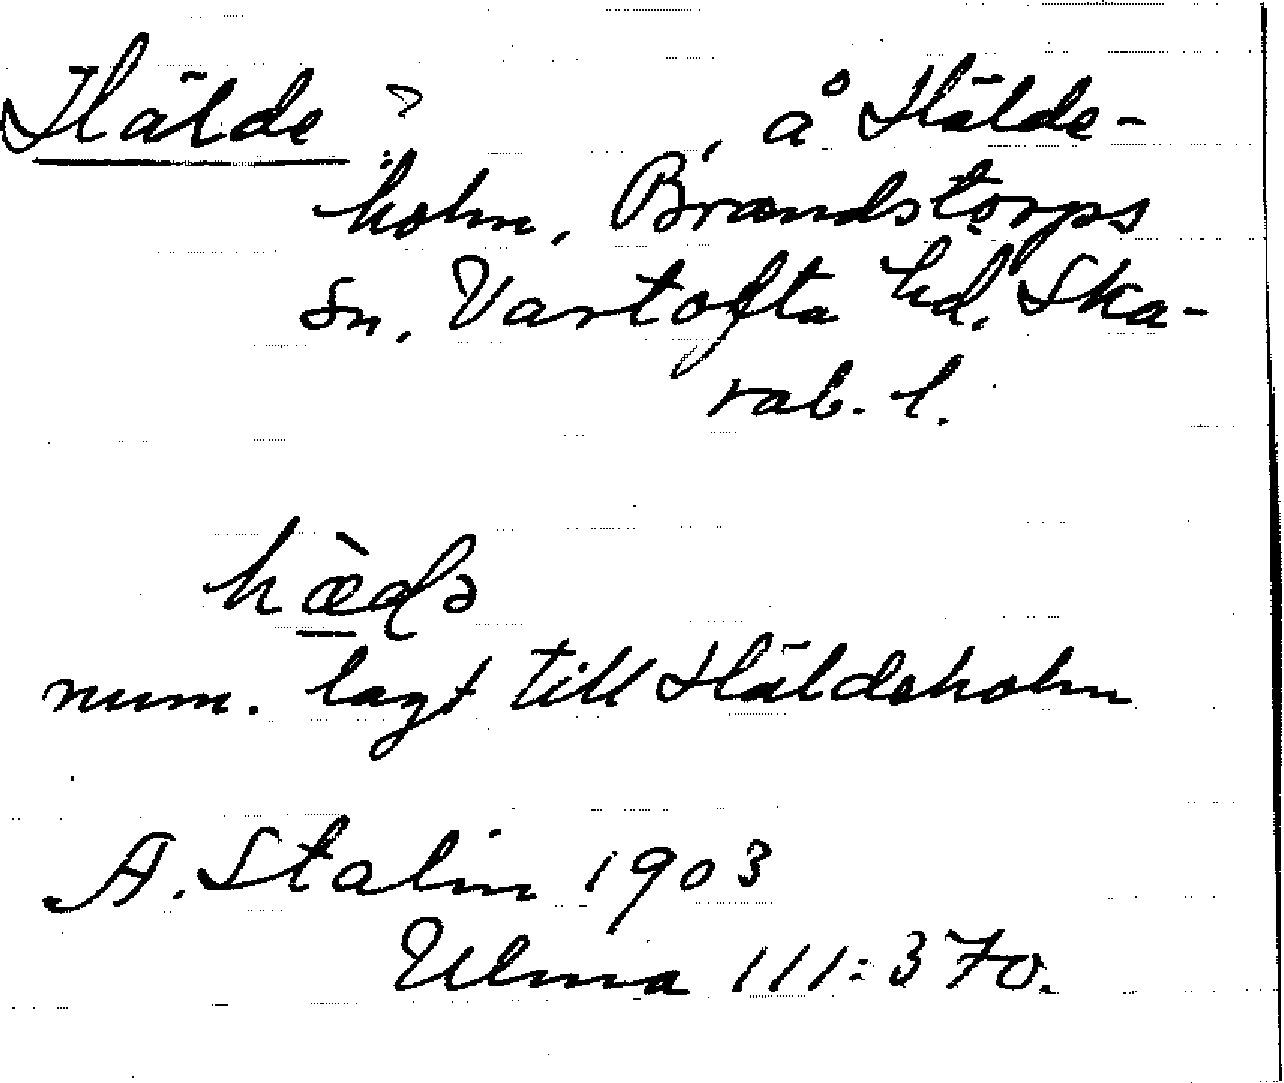 Hälde ? , å Hälde-
holm, Brandstorps
sn, Vartofta hd, Ska-
rab. l.
num. lagt till Häldeholm
A. Stalin 1903
Ulma 111:370.